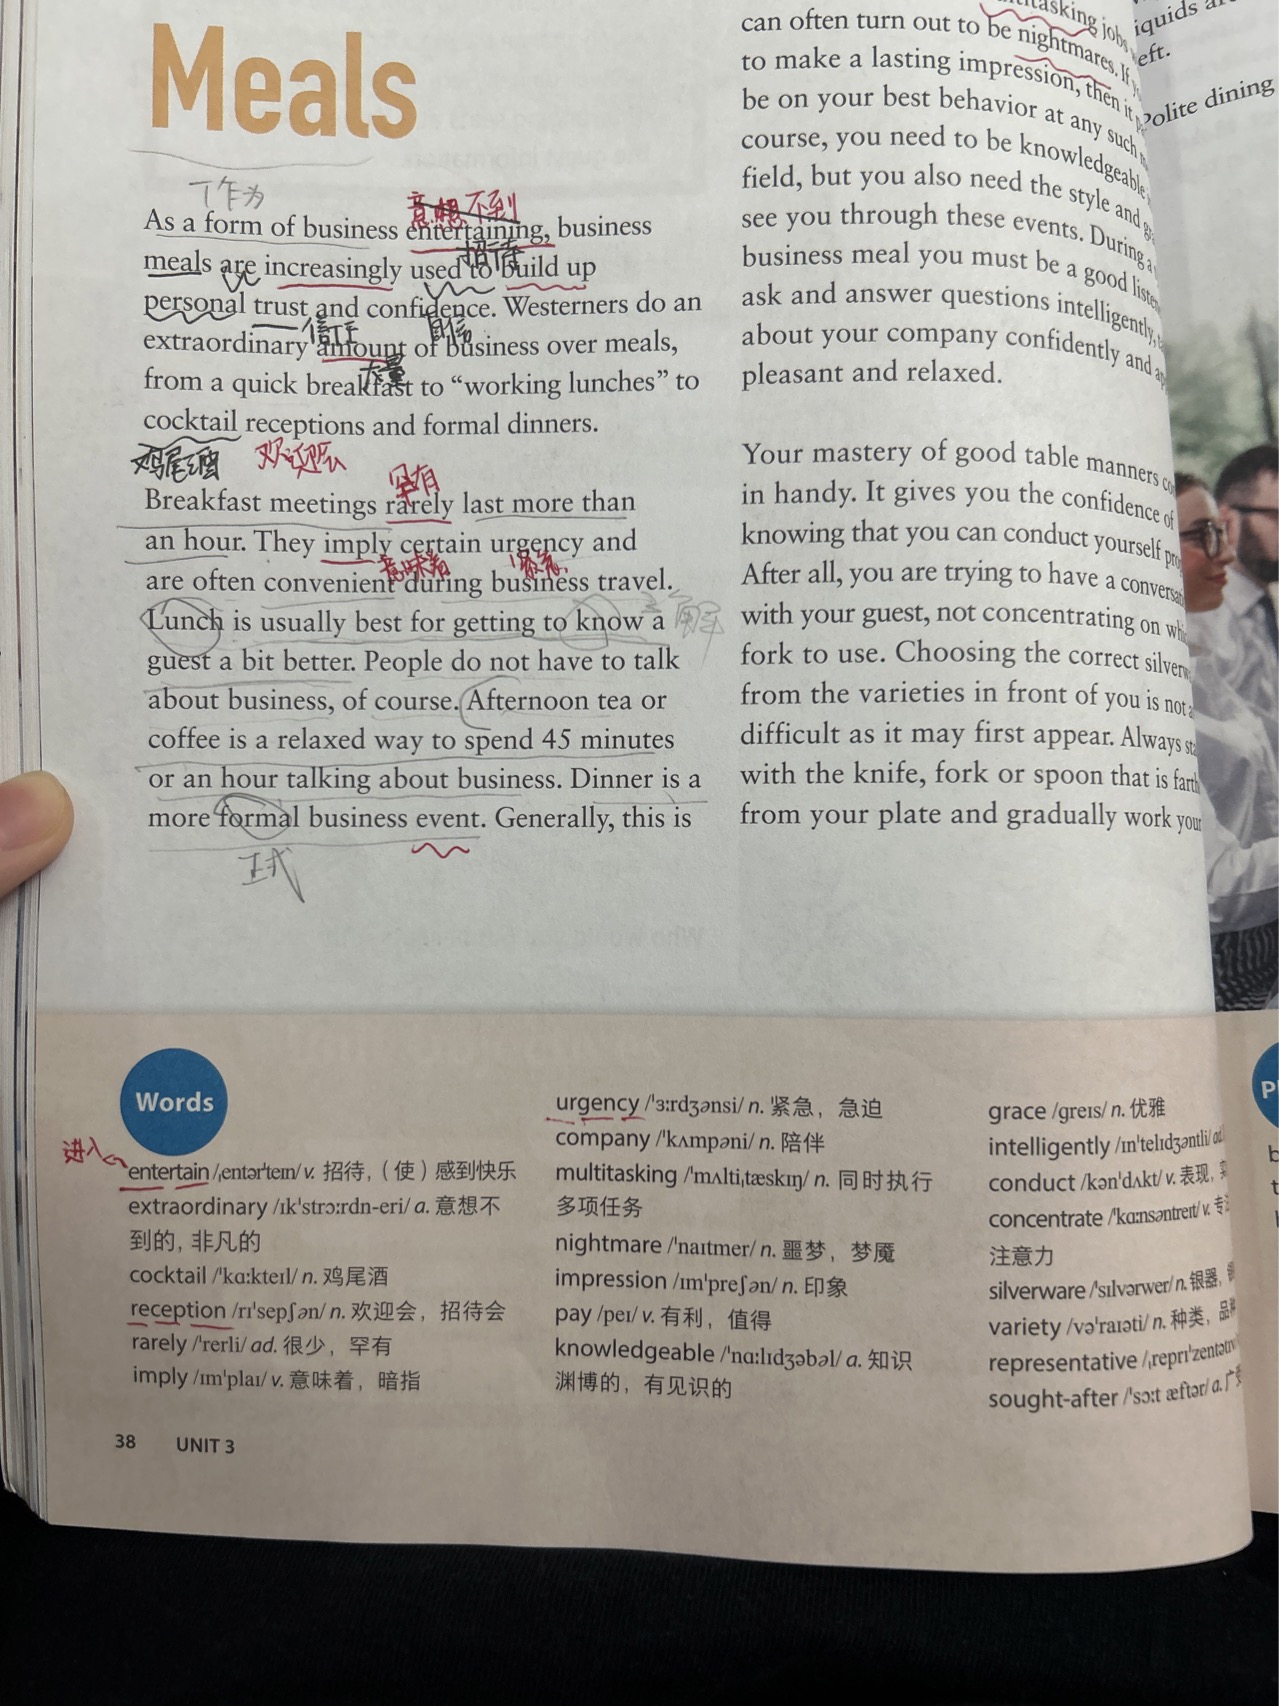 Meals
工作为
意想不到
As a form of business entertaining, business
招待
meals are increasingly used to build up
personal trust and confidence. Westerners do an
信任 自信
extraordinary amount of business over meals,
大量
from a quick breakfast to “working lunches” to
cocktail receptions and formal dinners.
鸡尾酒 欢迎会
罕有
Breakfast meetings rarely last more than
an hour. They imply certain urgency and
意味着 紧急
are often convenient during business travel.
Lunch is usually best for getting to know a
guest a bit better. People do not have to talk
about business, of course. Afternoon tea or
coffee is a relaxed way to spend 45 minutes
or an hour talking about business. Dinner is a
more formal business event. Generally, this is
正式
jobs
can often turn out to be nightmares. If
to make a lasting impression, then it
be on your best behavior at any such
course, you need to be knowledgeable
field, but you also need the style and
see you through these events. During a
business meal you must be a good
ask and answer questions intelligently,
about your company confidently and
pleasant and relaxed.
Your mastery of good table manners
in handy. It gives you the confidence of
knowing that you can conduct yourself
After all, you are trying to have a
with your guest, not concentrating on
fork to use. Choosing the correct
from the varieties in front of you is not
difficult as it may first appear. Always
with the knife, fork or spoon that is
from your plate and gradually work your
iquids
eft.
Polite dining
Words
进入
entertain /ˌentərˈteɪn/ v. 招待，（使）感到快乐
extraordinary /ɪkˈstrɔːrdn-eri/ a. 意想不
到的, 非凡的
cocktail /ˈkɑːkteɪl/ n. 鸡尾酒
reception /rɪˈsepʃən/ n. 欢迎会，招待会
rarely /ˈrerli/ ad. 很少，罕有
imply /ɪmˈplaɪ/ v. 意味着，暗指
urgency /ˈɜːrdʒənsi/ n. 紧急，急迫
company /ˈkʌmpəni/ n. 陪伴
multitasking /ˈmʌltiˌtæskɪŋ/ n. 同时执行
多项任务
nightmare /ˈnaɪtmer/ n. 噩梦，梦魇
impression /ɪmˈpreʃən/ n. 印象
pay /peɪ/ v. 有利，值得
knowledgeable /ˈnɑːlɪdʒəbəl/ a. 知识
渊博的，有见识的
grace /greɪs/ n. 优雅
intelligently /ɪnˈtelɪdʒəntli/
conduct /kənˈdʌkt/ v. 表现,
concentrate /ˈkɑːnsəntreɪt/ v.
注意力
silverware /ˈsɪlvərwer/ n. 银器,
variety /vəˈraɪəti/ n. 种类,
representative
sought-after /ˈsɔːt æftər/ a.
38 UNIT 3